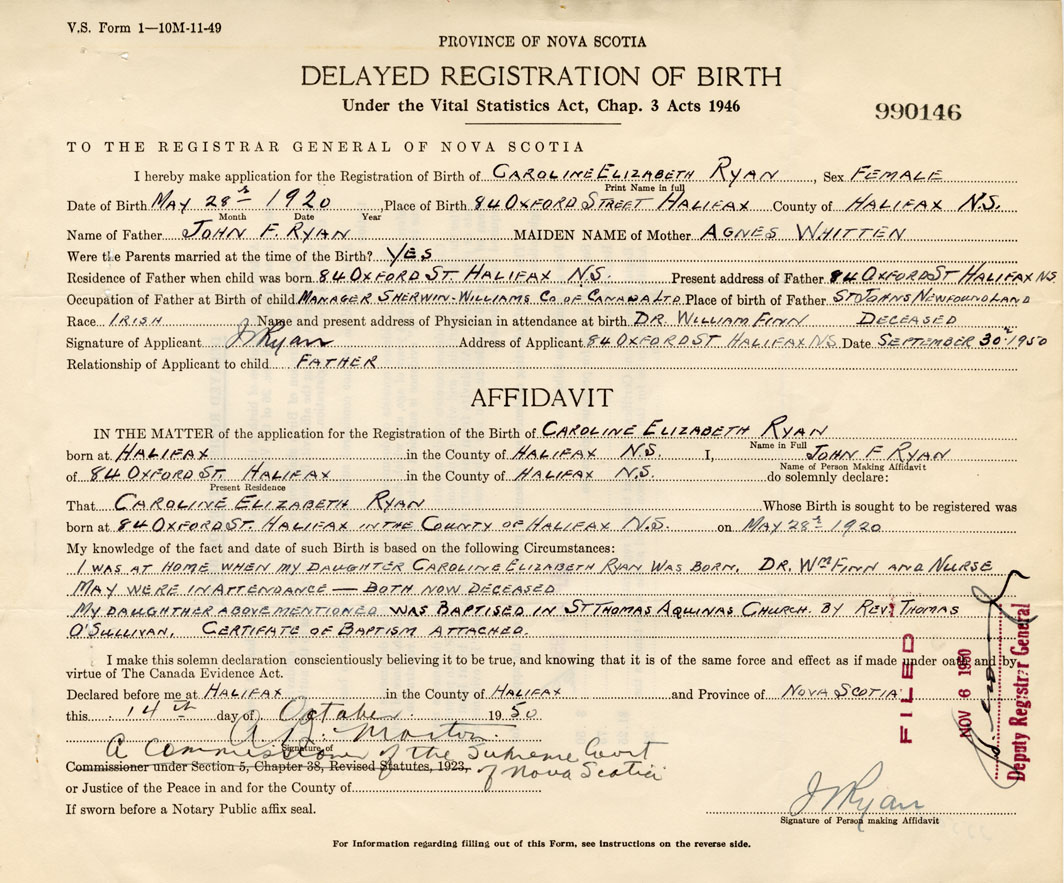 V.S. Form 1—10M-11-49
PROVINCE OF NOVA SCOTIA
DELAYED REGISTRATION OF BIRTH
Under the Vital Statistics Act, Chap. 3 Acts 1946
990146
TO THE REGISTRAR GENERAL OF NOVA SCOTIA
I hereby make application for the Registration of Birth of CAROLINE ELIZABETH RYAN, Sex FEMALE
Print Name in full
Date of Birth MAY 28th 1920 Place of Birth 84 OXFORD STREET HALIFAX County of HALIFAX N.S.
Month Date Year
Name of Father JOHN F. RYAN MAIDEN NAME of Mother AGNES WHITTEN
Were the Parents married at the time of the Birth? YES
Residence of Father when child was born 84 OXFORD ST HALIFAX N.S. Present address of Father 84 OXFORD ST HALIFAX NS
Occupation of Father at Birth of child MANAGER SHERWIN-WILLIAMS CO OF CANADA LTD Place of birth of Father ST JOHNS NEWFOUNDLAND
Race IRISH Name and present address of Physician in attendance at birth DR. WILLIAM FINN DECEASED
Signature of Applicant J Ryan Address of Applicant 84 OXFORD ST HALIFAX NS Date SEPTEMBER 30th 1950
Relationship of Applicant to child FATHER
AFFIDAVIT
IN THE MATTER of the application for the Registration of the Birth of CAROLINE ELIZABETH RYAN
Name in Full
born at HALIFAX in the County of HALIFAX N.S. I, JOHN F RYAN
Name of Person Making Affidavit
of 84 OXFORD ST. HALIFAX in the County of HALIFAX N.S. do solemnly declare:
Present Residence
That CAROLINE ELIZABETH RYAN Whose Birth is sought to be registered was
born at 84 OXFORD ST. HALIFAX IN THE COUNTY OF HALIFAX N.S. on MAY 28th 1920
My knowledge of the fact and date of such Birth is based on the following Circumstances:
I WAS AT HOME WHEN MY DAUGHTER CAROLINE ELIZABETH RYAN WAS BORN. DR. WM FINN AND NURSE
MAY WERE IN ATTENDANCE — BOTH NOW DECEASED
MY DAUGHTHER ABOVE MENTIONED WAS BAPTISED IN ST THOMAS AQUINAS CHURCH. BY REV. THOMAS
O'SULLIVAN. CERTIFATE OF BAPTISM ATTACHED.
I make this solemn declaration conscientiously believing it to be true, and knowing that it is of the same force and effect as if made under oath and by
virtue of The Canada Evidence Act.
Declared before me at HALIFAX in the County of HALIFAX and Province of NOVA SCOTIA
this 14th day of October 1950
Signature of
A Commissioner of the Supreme Court
of Nova Scotia
Commissioner under Section 5, Chapter 38, Revised Statutes, 1923,
or Justice of the Peace in and for the County of
If sworn before a Notary Public affix seal.
J Ryan
Signature of Person making Affidavit
FILED
NOV 6 1950
Deputy Registrar General
For Information regarding filling out of this Form, see instructions on the reverse side.